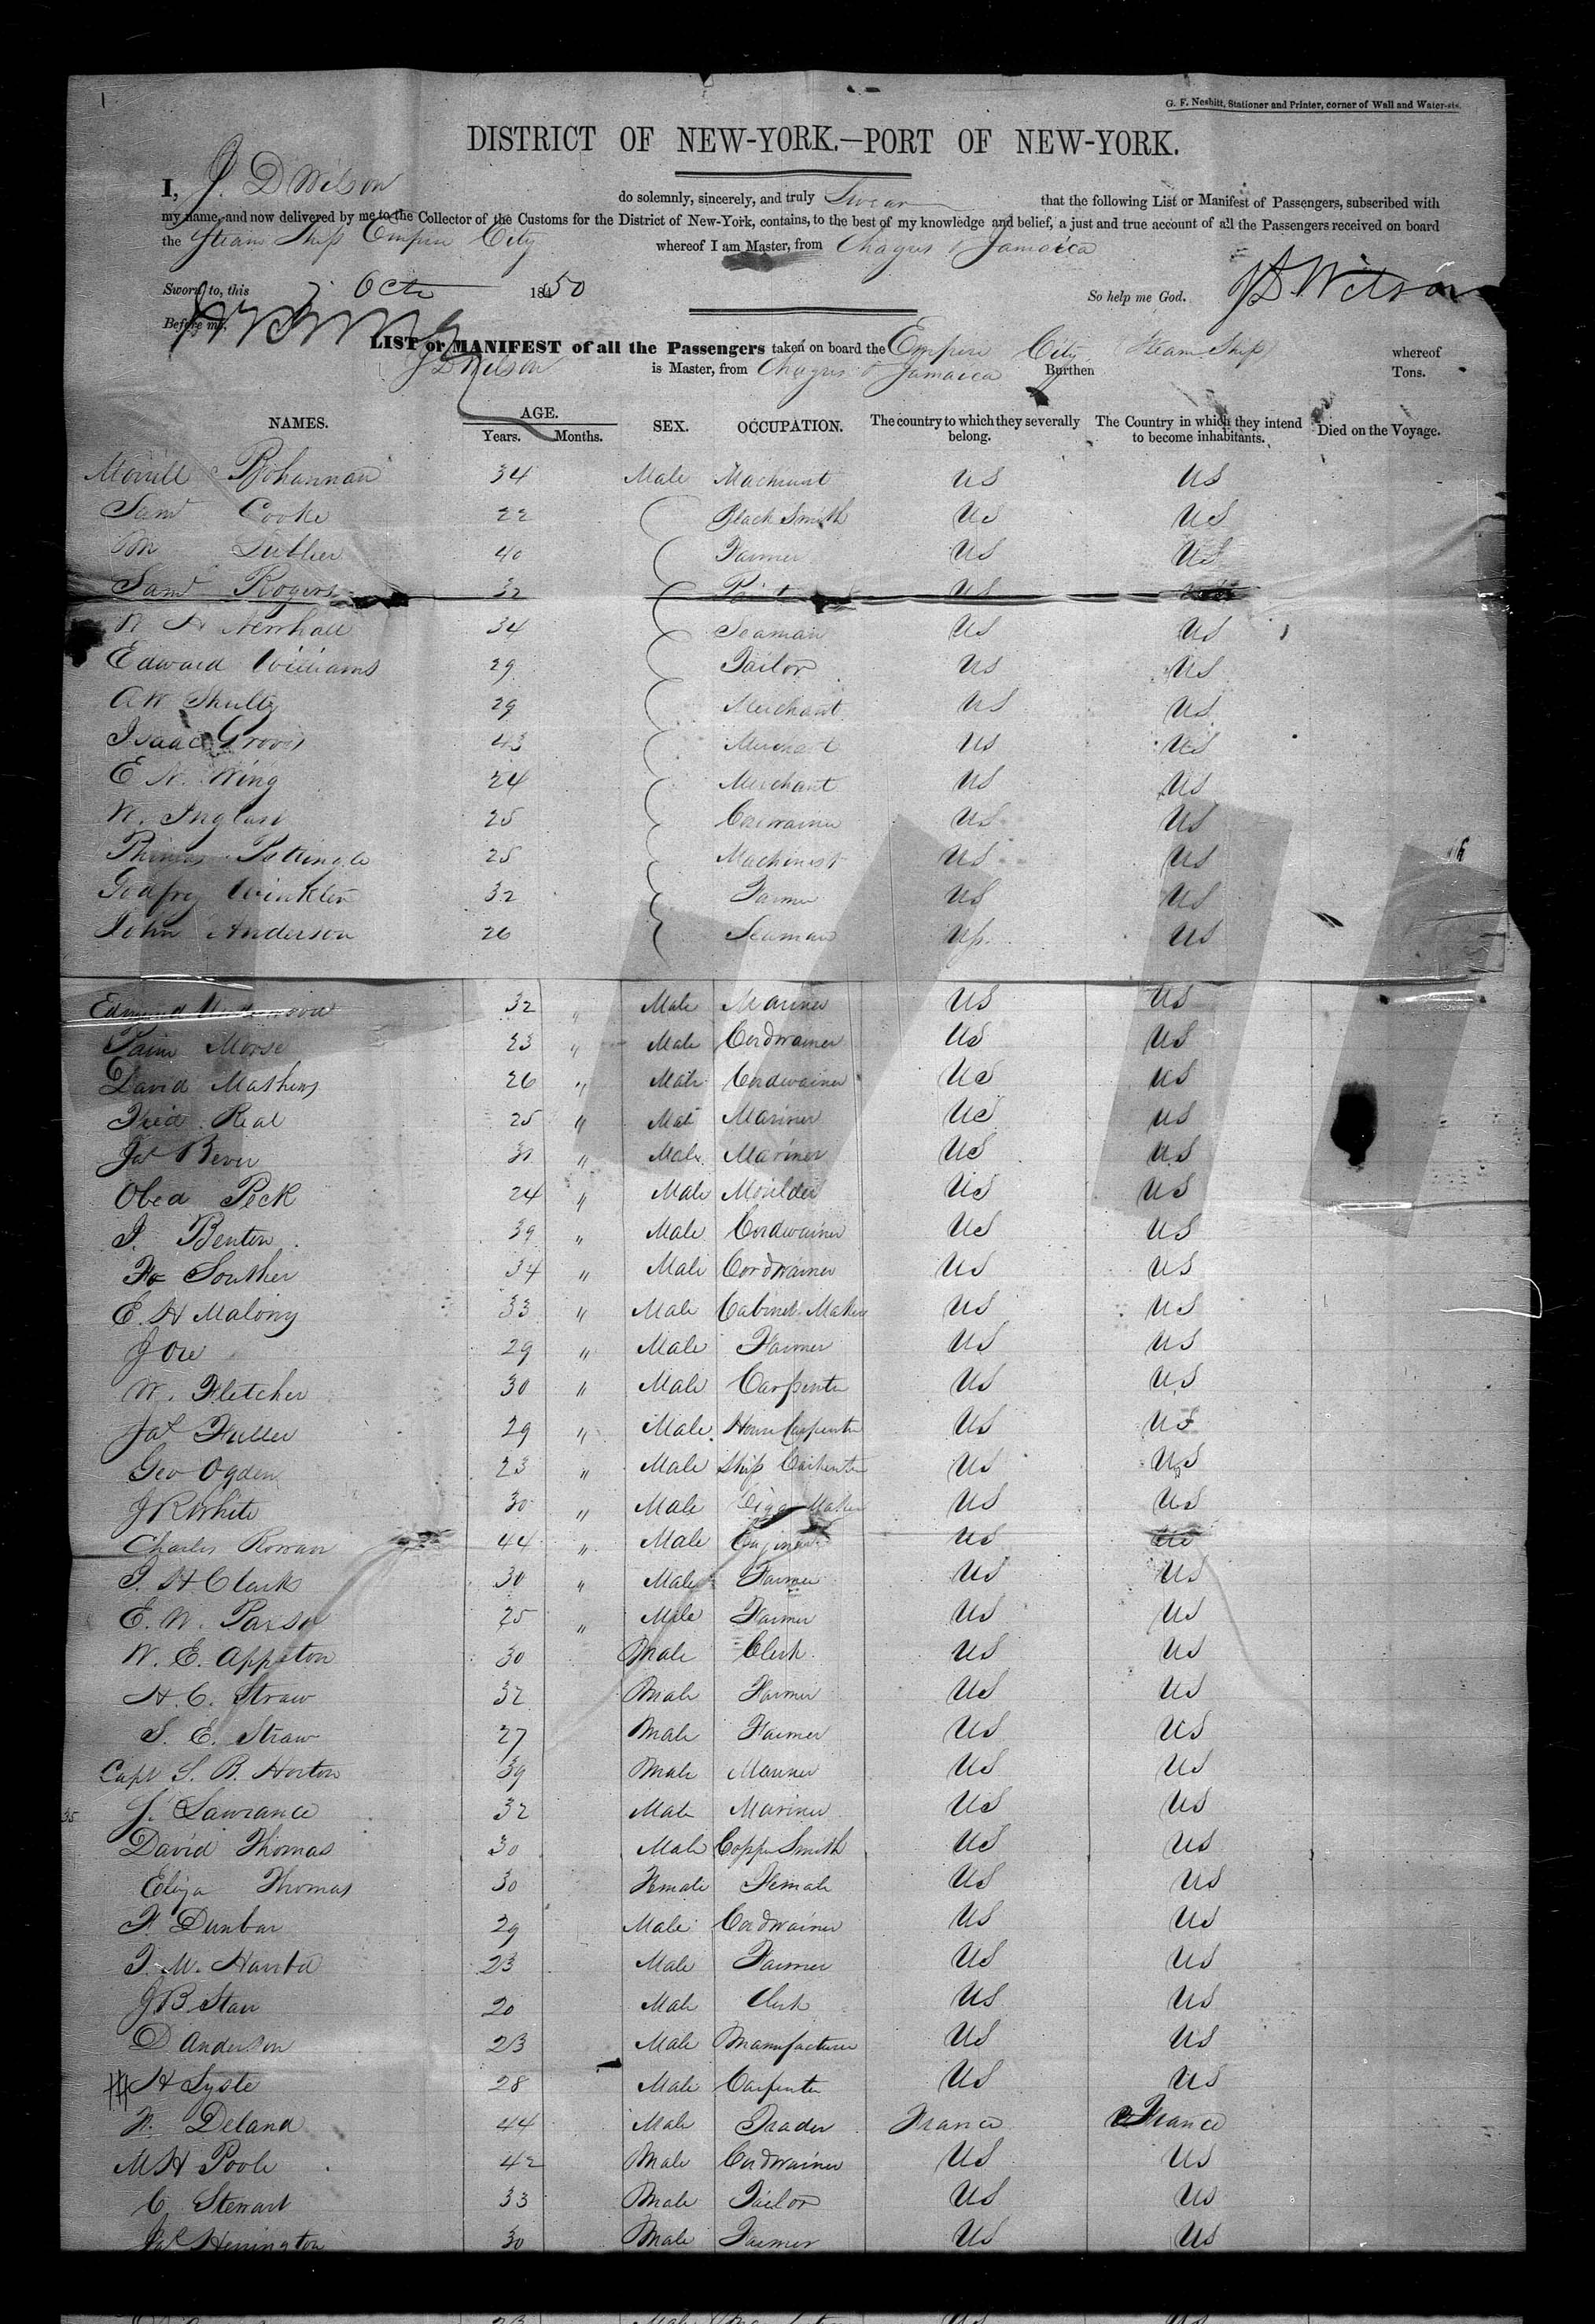 G. F. Nesbitt, Stationer and Printer, corner of Wall and Water-sts.
DISTRICT OF NEW-YORK.—PORT OF NEW-YORK.
I, J. D Wilson do solemnly, sincerely, and truly Swear that the following List or Manifest of Passengers, subscribed with
my name, and now delivered by me to the Collector of the Customs for the District of New-York, contains, to the best of my knowledge and belief, a just and true account of all the Passengers received on board
the Steam Ship Empire City whereof I am Master, from Chagres & Jamaica
Sworn to, this 7 Octr 1850 So help me God. J D Wilson
Before me,
LIST or MANIFEST of all the Passengers taken on board the Empire City Steam Ship whereof
J D Wilson is Master, from Chagres & Jamaica Burthen Tons.
NAMES. AGE. Years. Months. SEX. OCCUPATION. The country to which they severally belong. The Country in which they intend to become inhabitants. Died on the Voyage.
Morrill Bohannan 34 Male Machinist US US
Saml Cooke 22 Black Smith US US
Wm 40 Farmer US US
Saml Rogers 32 US
W H Newhall 34 Seaman US US
Edward Williams 29 Tailor US US
A W Shultz 29 Merchant US US
Isaac Groves 43 Merchant US US
E N. Wing 24 Merchant US US
W. 25 Cordwainer US US
25 Machinist US US
Godfrey Winkler 32 Farmer US US
John Anderson 26 Seaman US US
Edmund 32 " Male Mariner US US
Morse 23 " Male Cordwainer US US
David Mathews 26 " Male Cordwainer US US
Fred Real 25 " Male Mariner US US
Jas Bever " Male Mariner US US
Obed Peck 24 " Male Moulder US US
J. Benton 39 " Male Cordwainer US US
Souther 34 " Male Cordwainer US US
E. H Malony 33 " Male Cabinet Maker US US
J 29 " Male Farmer US US
W. Fletcher 30 " Male Carpenter US US
Jas Fuller 29 " Male House Carpenter US US
Geo Ogden 23 " Male Ship Carpenter US US
J R White 30 " Male Maker US US
Charles Rowan 44 " Male Engineer US US
J. H Clark 30 " Male Farmer US US
E. W. 25 " Male Farmer US US
W. E. Appleton 30 Male Clerk US US
H. C. Straw 32 Male Farmer US US
S. E. Straw 27 Male Farmer US US
Capt S. B. Horton 39 Male Mariner US US
35 J. Lawrance 32 Male Mariner US US
David Thomas 30 Male Copper Smith US US
Eliza Thomas 30 Female Female US US
F. Dunbar 29 Male Cordwainer US US
23 Male Farmer US US
J B Starr 20 Male Clerk US US
D Anderson 23 Male Manufacturer US US
H Lyste 28 Male Carpenter US US
Deland 44 Male Trader France France
M H Poole 42 Male Cordwainer US US
C Stewart 33 Male Tailor US US
Jas Herrington 30 Male Farmer US US